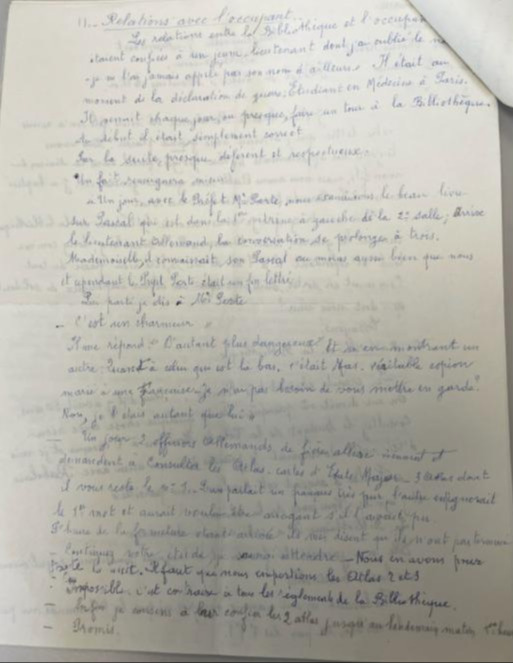 11.- Relations avec l'occupant.
Les relations entre la Bibliothèque et l'occupan
étaient confiées à un jeune lieutenant dont j'ai oublié le no
- je ne l'ai jamais appelé par son nom d'ailleurs. Il était au
moment de la déclaration de guerre, Etudiant en Médecine à Paris.
Il venait chaque jour, ou presque, faire un tour à la Bibliothèque.
Au début il était simplement correct
Par la suite, presque déférent et respectueux.
Un fait
Un jour, avec le Préfet Mr Porte, nous examinions le beau livre
sur Pascal qui est dans la 1ère vitrine à gauche de la 2e salle; Arrive
le lieutenant Allemand, la conversation se prolongea à trois.
Mademoiselle, il connaissait son Pascal au moins aussi bien que nous
et cependant le Préfet Porte était un fin lettré
Lui parti je dis à Mr Porte
- C'est un charmeur
Il me répond: "D'autant plus dangereux". Et m'en montrant un
autre "Quant à celui qui est là bas, c'était véritable espion
marié à une française, je n'ai pas besoin de vous mettre en garde"
Non, je l'étais autant que lui.
- Un jour 2 officiers Allemands, de fière allure viennent et
demandent à consulter les Atlas, cartes d'Etat Major 3 Atlas dont
il vous reste le n° 1. L'un parlait un français très pur, l'autre
le 1er mot et aurait voulu être arrogant s'il l'avait pu
L'heure de la fermeture étant arrivée ils me disent qu'ils n'ont pas terminé
- Continuez votre étude je saurai attendre - Nous en avons pour
toute la nuit. Il faut que nous emportions les Atlas 2 et 3
- Impossible. C'est contraire à tous les règlements de la Bibliothèque.
- Enfin je consens à leur confier les 2 atlas jusqu'au lendemain matin
- Promis.